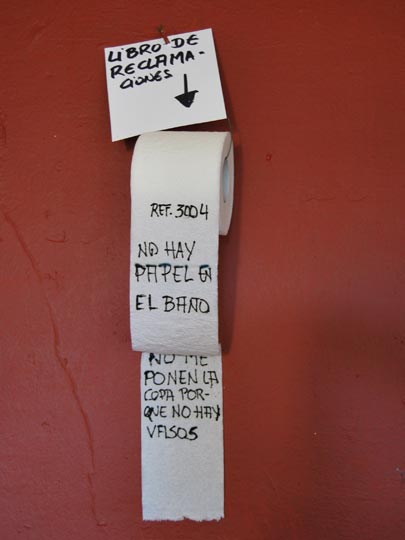 LIBRO DE
RECLAMA-
CIONES
REF. 3004
NO HAY
PAPEL EN
EL BAÑO
NO ME
PONEN LA
COPA POR-
QUE NO HAY
VASOS